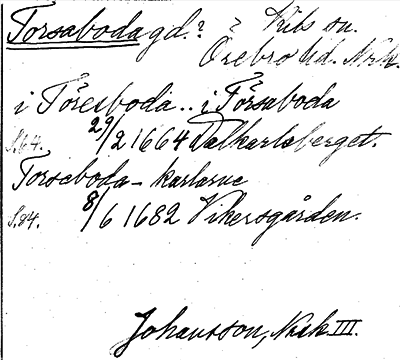 Torsaboda gd.? ? Kils sn.
Örebro hd. Nrk.
i Töresboda .. i Törsaboda
S.64. 29/2 1664 Dalkarlsberget.
Torseboda - karlarne
S.84. 8/6 1682 Vikersgården.
Johansson, Noak. III.